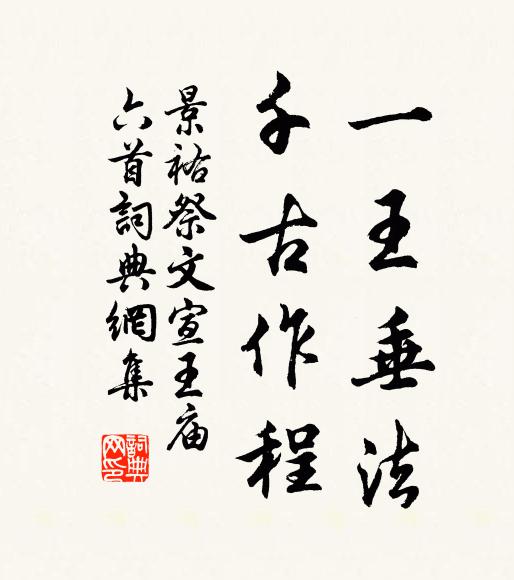 一王垂法
千古作程
景祐祭文宣王庙
六首詞典網集
詞典
网印